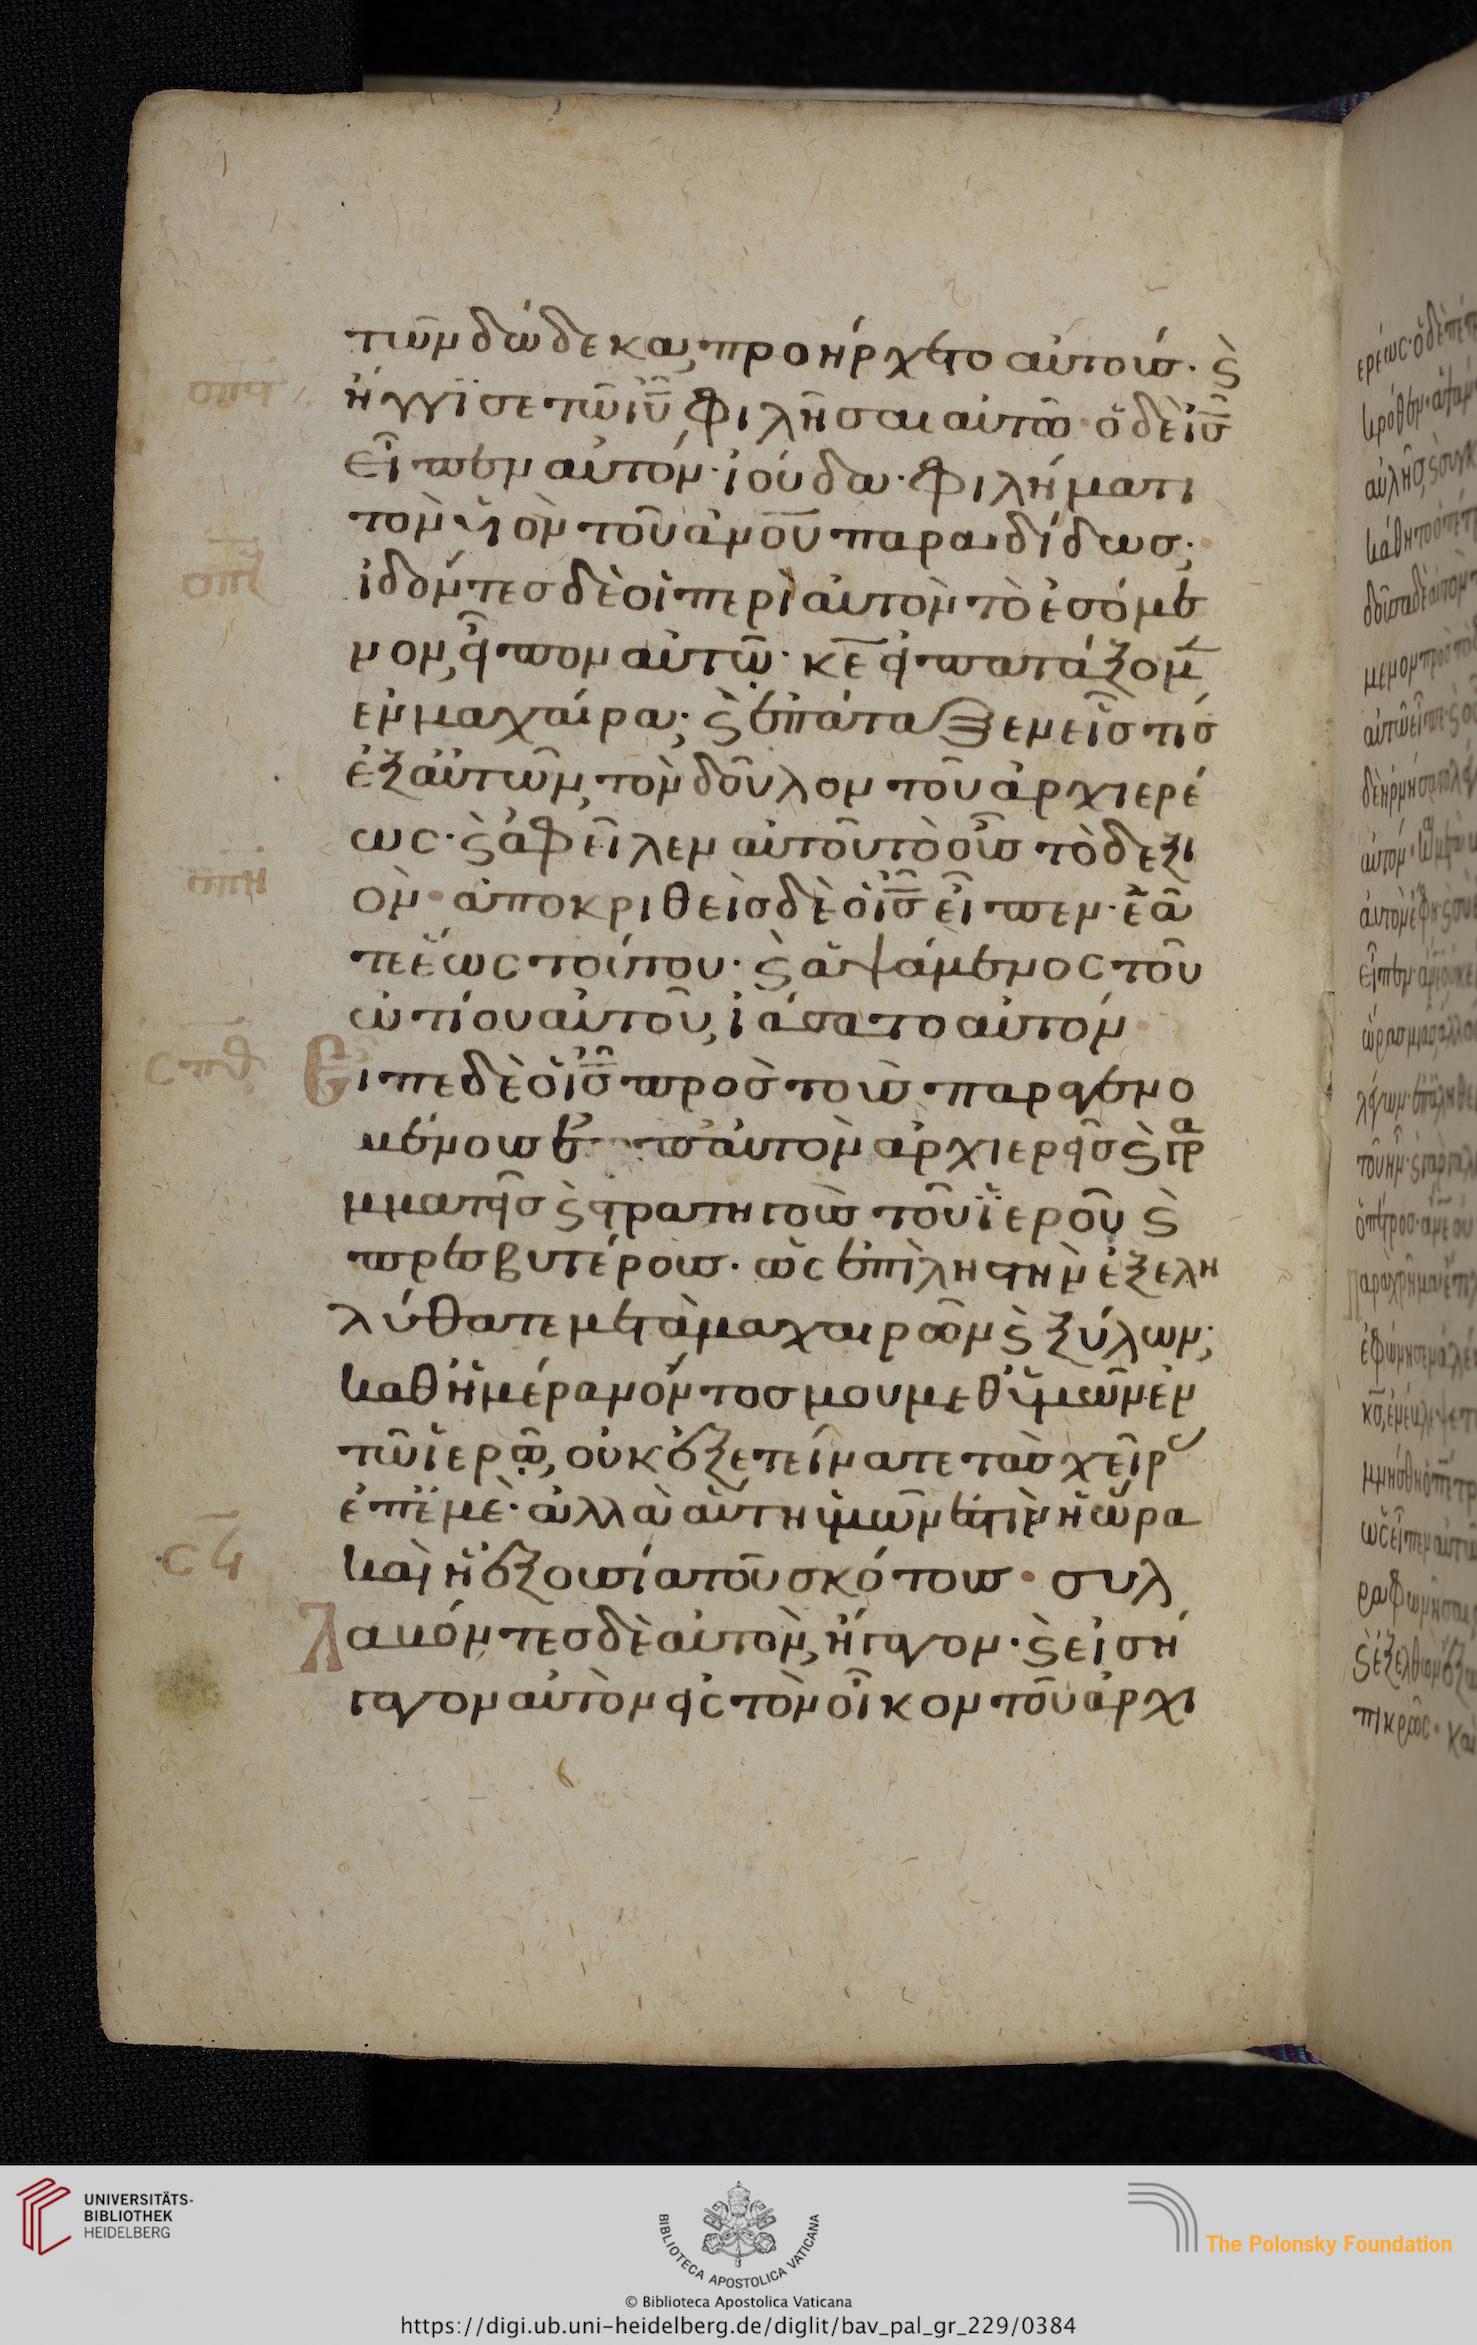 τῶν δώδεκα, προήρχετο αὐτούς· ϗ
ἤγγϊσε τῶ ιυ φιλῆσαι αὐτόν· ὁ δὲ ις
εἶπεν αὐτῶ· ἰούδα· φιλήματι
τὸν υἱὸν τοῦ ανου παραδίδως;
ἰδόντες δὲ οἱ περὶ αὐτὸν τὸ ἐσόμε
νον, εἶπον αὐτῶ· κε εἰ πατάξομεν
ἐν μαχαίρα; ϗ ἐπάταξεν εἷς τίς
ἐξ αὐτῶν, τὸν δοῦλον τοῦ ἀρχιερέ
ως· ϗ ἀφεῖλεν αὐτοῦ τὸ οὖς τὸ δεξι
όν· ἀποκριθεὶς δὲ ὁ ις εἶπεν· ἐᾶ
τε ἕως τούτου· ϗ ἁψάμενος τοῦ
ὠτίου αὐτοῦ, ἰάσατο αὐτόν
σπθ Εἶπε δὲ ὁ ις πρὸς τοὺς παραγενο
μένους ἐπ αὐτὸν ἀρχιερεῖς ϗ γρα
μματεῖς ϗ στρατηγοὺς τοῦ ἱεροῦ ϗ
πρεσβυτέρους· ὡς ἐπὶ ληστὴν ἐξελη
λύθατε μετὰ μαχαιρῶν ϗ ξύλων;
καθ ἡμέραν ὄντος μου μεθ ὑμῶν ἐν
τῶ ἱερῶ, οὐκ ἐξετείνατε τὰς χεῖρας
ἐπ ἐμὲ· ἀλλ αὕτη ὑμῶν ἐστὶν ἡ ὥρα
καὶ ἡ ἐξουσία τοῦ σκότους· συλ
λαβόντες δὲ αὐτὸν, ἤγαγον· ϗ εἰσή
γαγον αὐτὸν εἰς τὸν οἶκον τοῦ ἀρχι
UNIVERSITÄTS-
BIBLIOTHEK
HEIDELBERG
BIBLIOTECA APOSTOLICA VATICANA
The Polonsky Foundation
© Biblioteca Apostolica Vaticana
https://digi.ub.uni-heidelberg.de/diglit/bav_pal_gr_229/0384